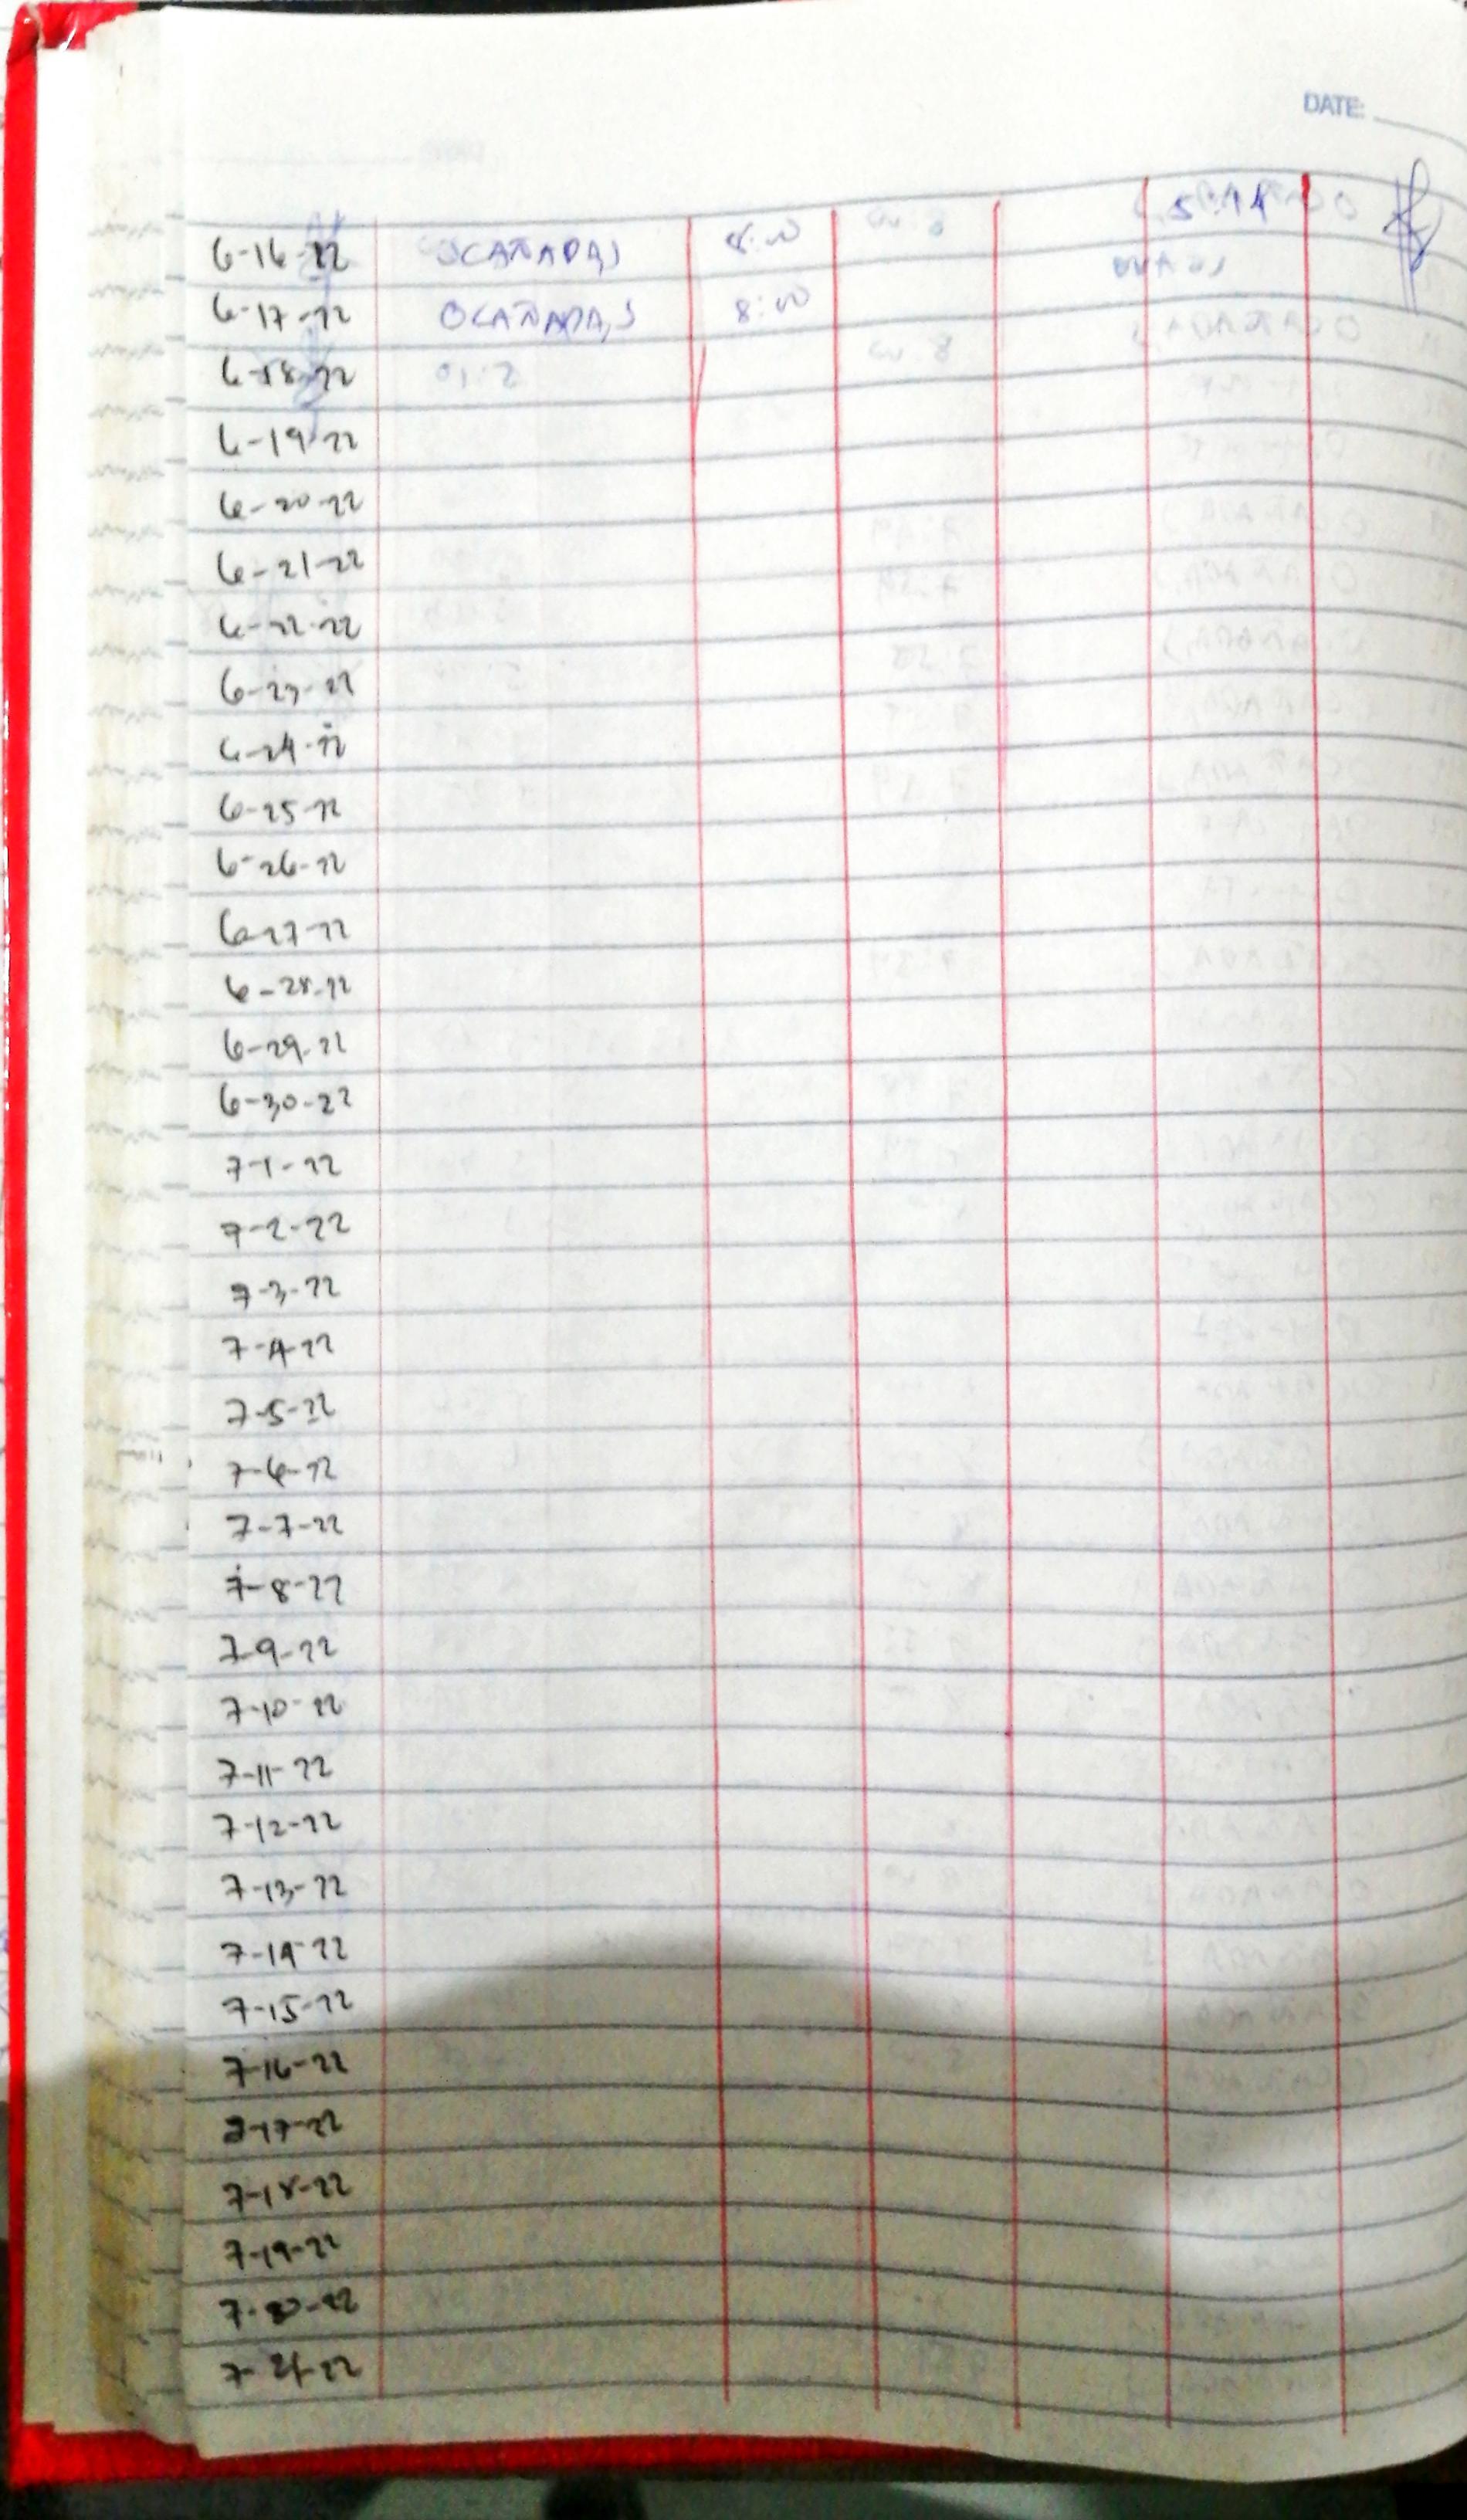 DATE:
6-16-22 OCAÑADA, J 8:00 5:11
6-17-22 OCAÑADA, J 8:00
6-18-22
6-19-22
6-20-22
6-21-22
6-22-22
6-23-22
6-24-22
6-25-22
6-26-22
6-27-22
6-28-22
6-29-22
6-30-22
7-1-22
7-2-22
7-3-22
7-4-22
7-5-22
7-6-22
7-7-22
7-8-22
7-9-22
7-10-22
7-11-22
7-12-22
7-13-22
7-14-22
7-15-22
7-16-22
7-17-22
7-18-22
7-19-22
7-20-22
7-21-22